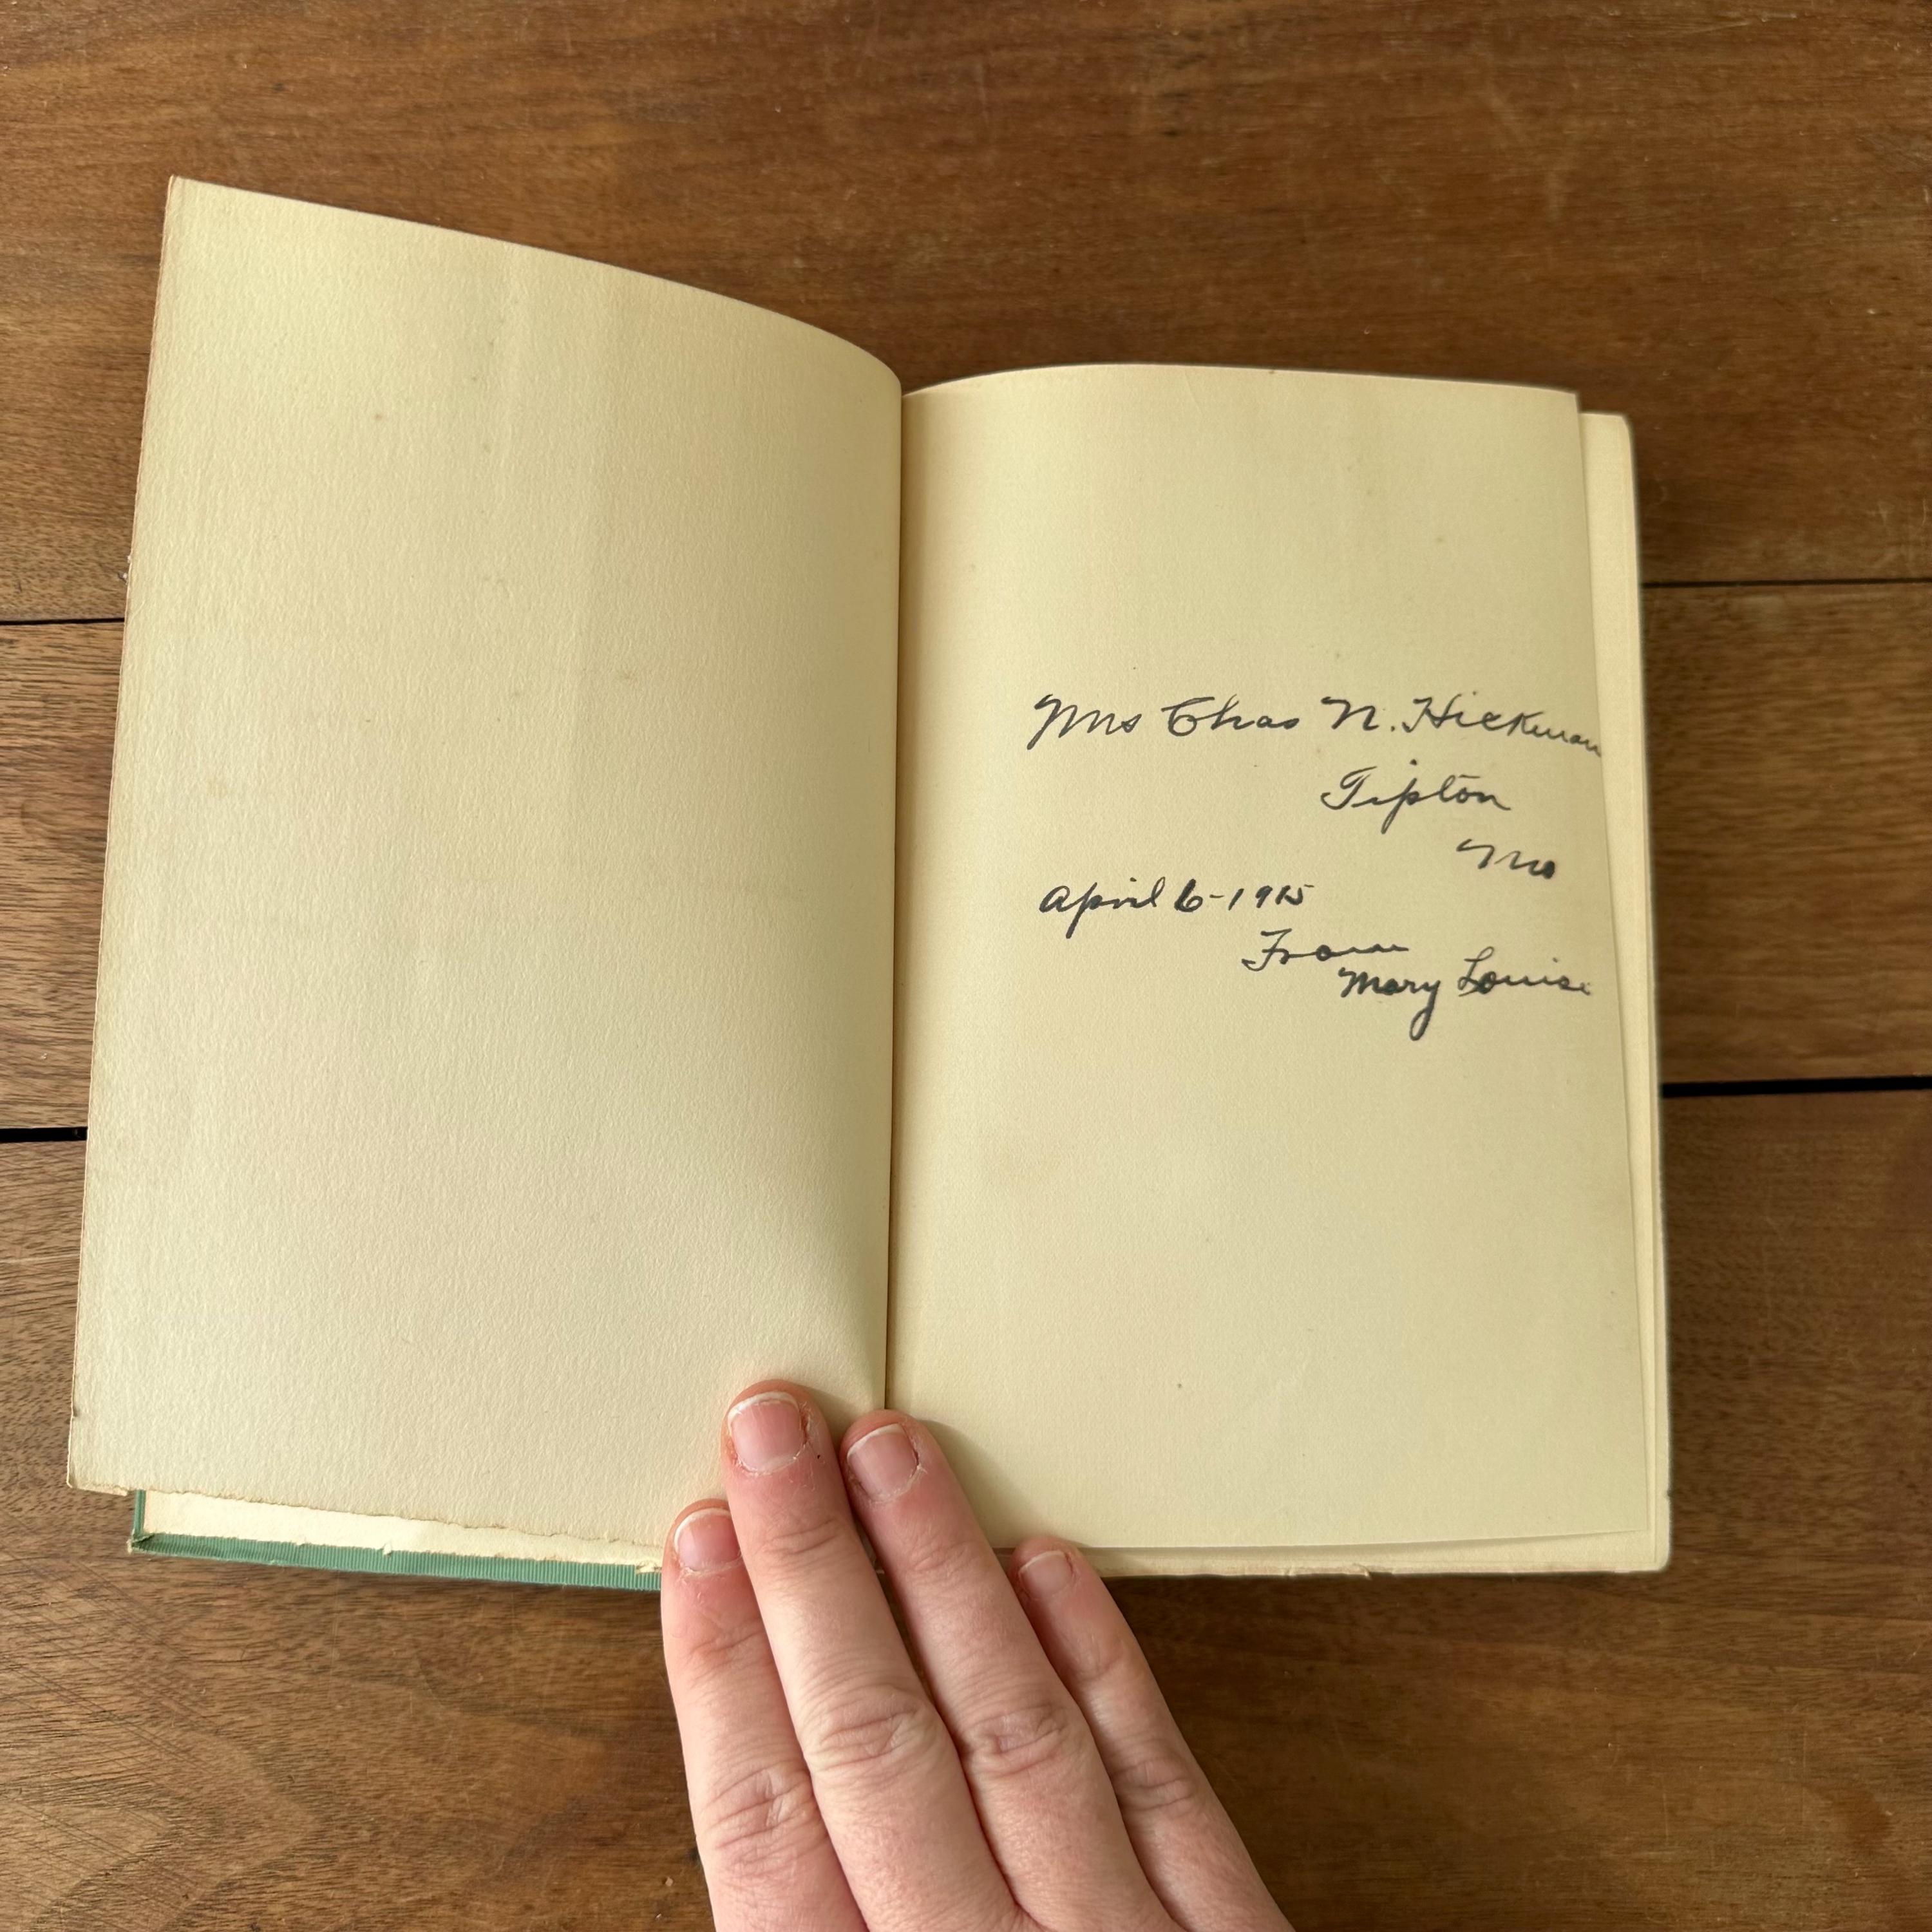 Mrs Chas N. Hickman
Tipton
Mo
April 6-1915
From
Mary Louise